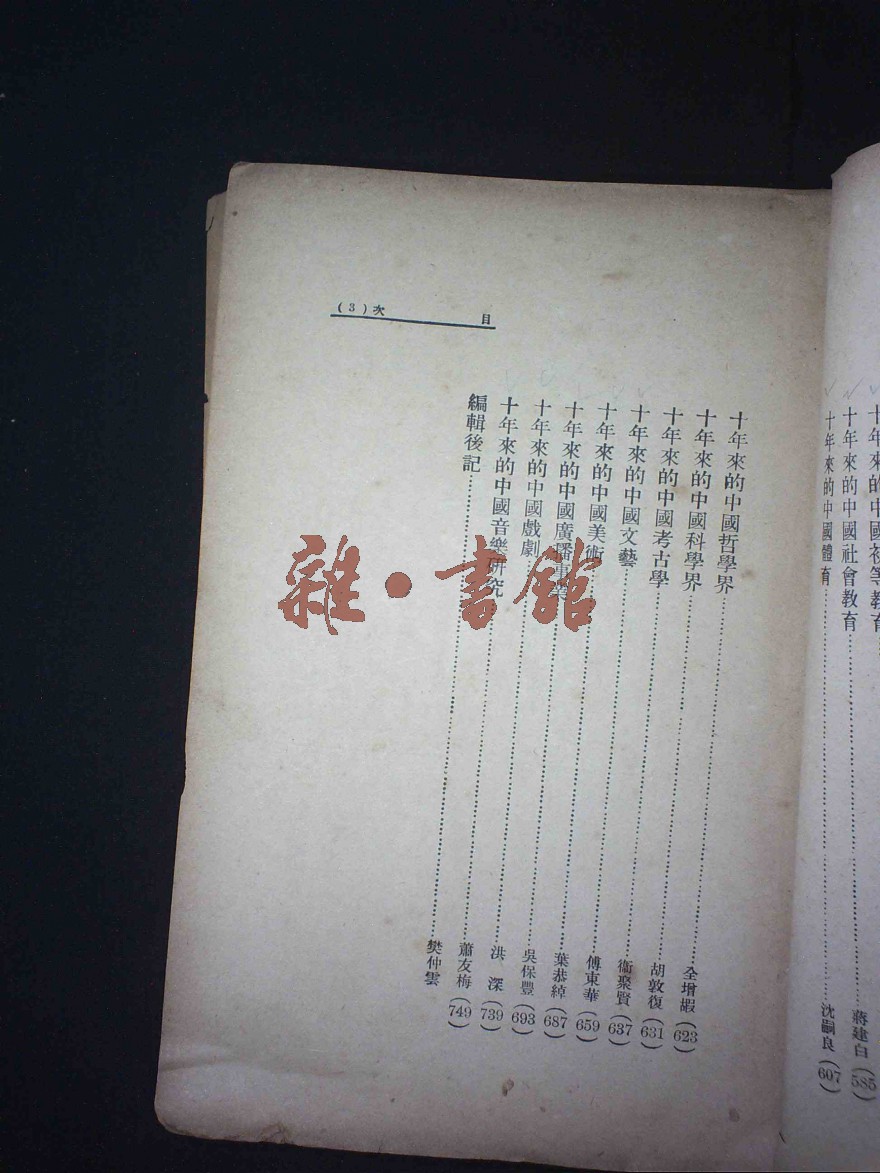 十年來的中國初等教育
十年來的中國社會教育……蔣建白(585)
十年來的中國體育……沈嗣良(607)
目 次(3)
十年來的中國哲學界……全增嘏(623)
十年來的中國科學界……胡敦復(631)
十年來的中國考古學……衞聚賢(637)
十年來的中國文藝……傅東華(659)
十年來的中國美術……葉恭綽(687)
十年來的中國廣播事業……吳保豐(693)
十年來的中國戲劇……洪 深(739)
十年來的中國音樂研究……蕭友梅(749)
編輯後記……樊仲雲
雜·書館